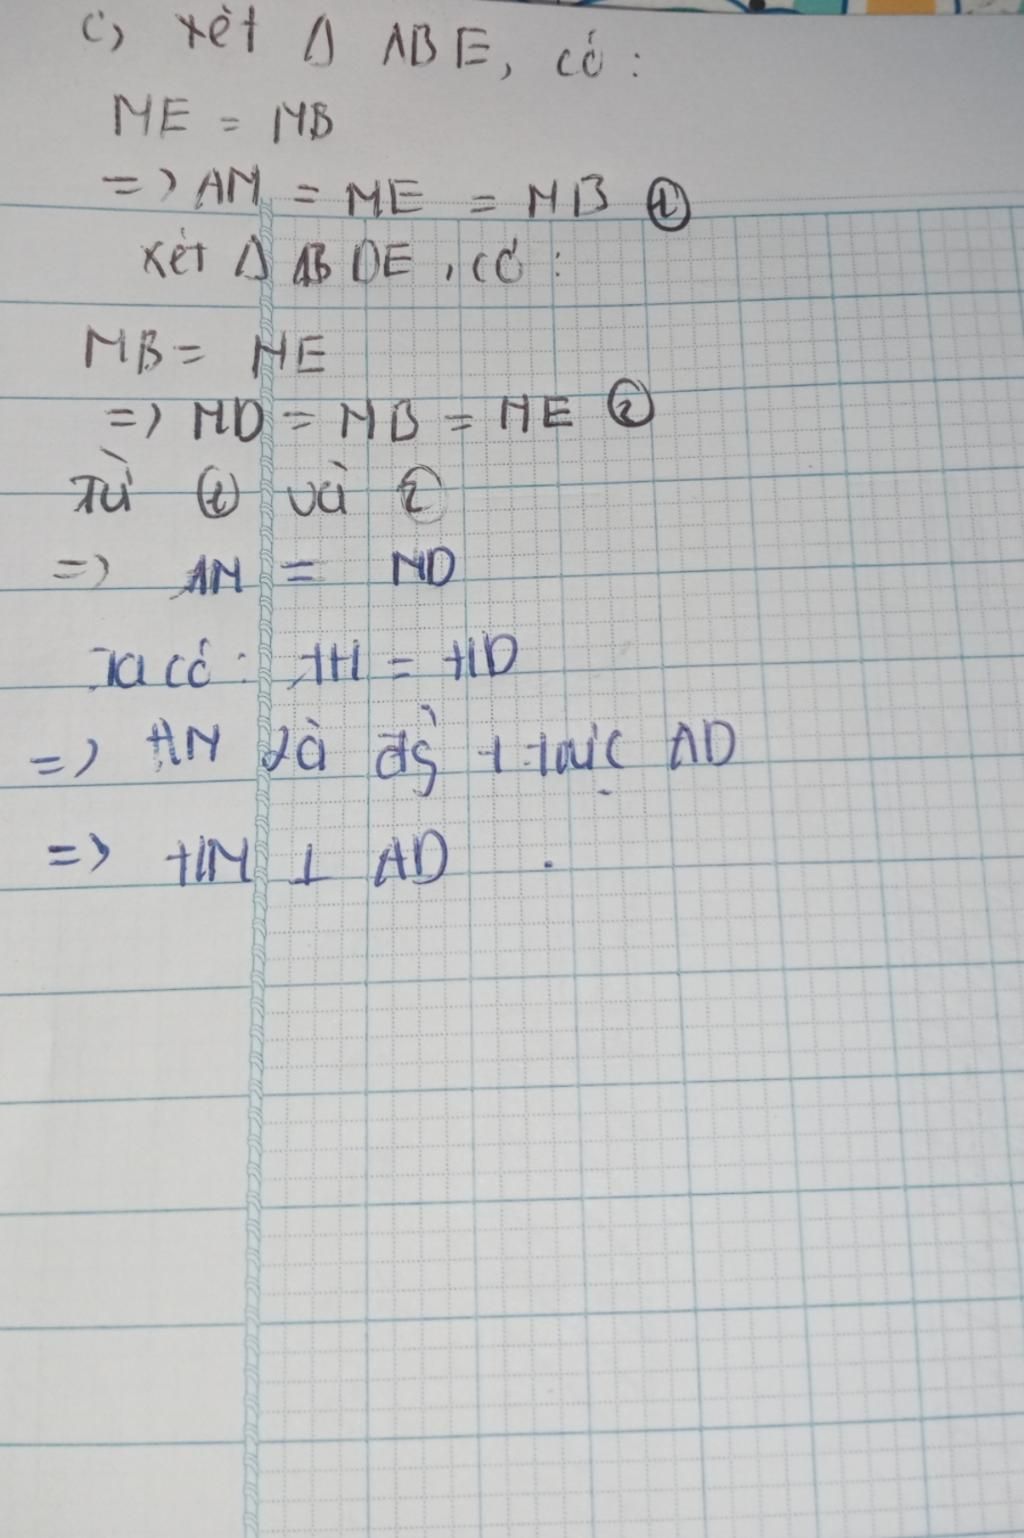 c, xét Δ ABE, có :
ME = MB
=> AM = ME = MB ①
xét Δ BDE, có :
MB = ME
=> MD = MB = ME ②
Từ ① và ②
=> AM = MD
Ta có : AH = HD
=> HM là đg̉ t trực AD
=> HM ⊥ AD .